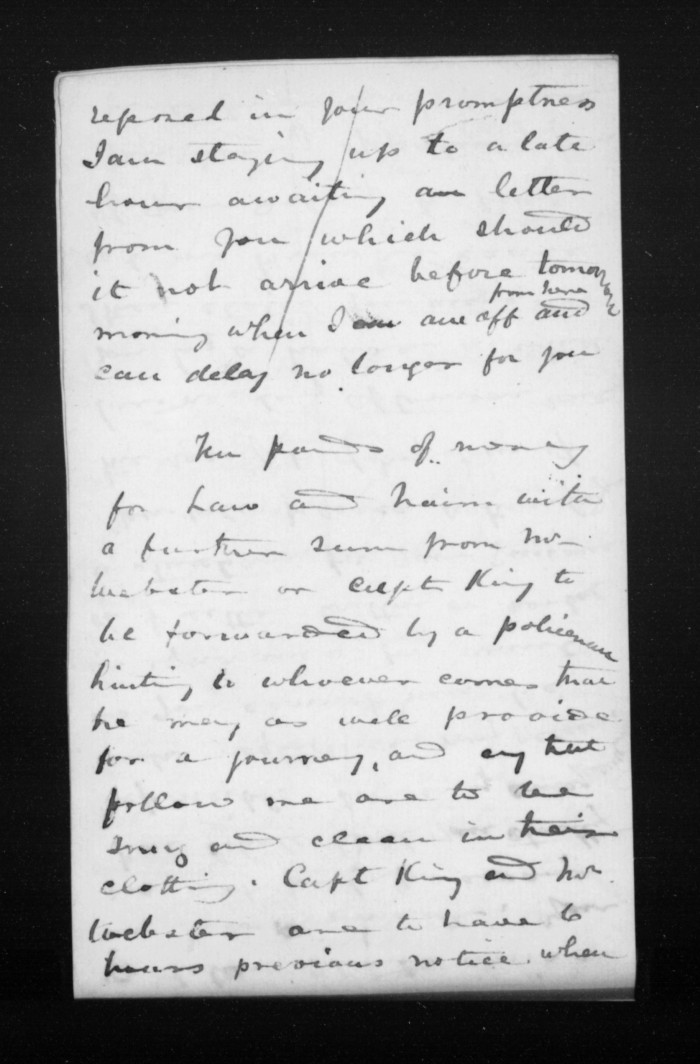 reposed in your promptness
I am staying up to a late
hour awaiting a letter
from you which should
it not arrive before tomorrow
from here
morning when I are off and
can delay no longer for you
Ten pounds of money
for Law and with
a further sum from Mr
Webster or Capt King to
be forwarded by a policeman
hinting to whoever comes that
he may as well provide
for a journey, and any that
follow me are to be
snug and clean in their
clothing. Capt King and Mr
Webster are to have 6
hours previous notice when